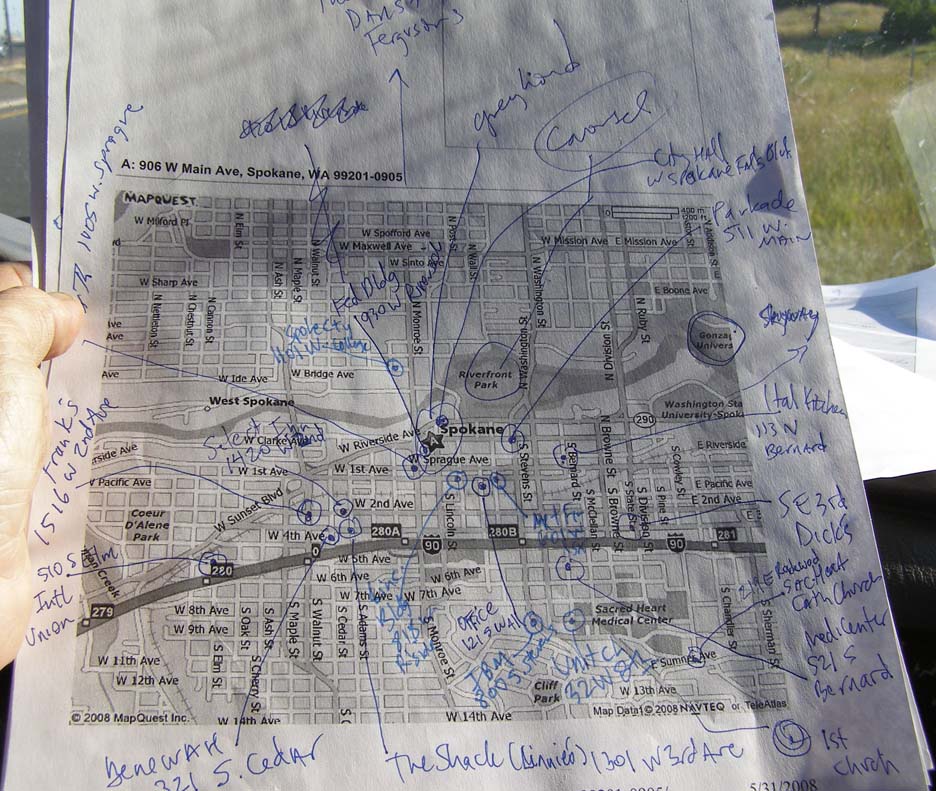 Ferguson's
greyhound
Carousel
City Hall
W Spokane Falls Blvd
A: 906 W Main Ave, Spokane, WA 99201-0905
Parkade
511 W.
MAIN
1405 W. Sprague
MAPQUEST
400 m
1200 ft
W Milford Pl
N Elm St
N Walnut St
N Maple St
N Ash St
N Post St
N Wall St
W Spofford Ave
W Maxwell Ave
W Sinto Ave
W Mission Ave
E Mission Ave
W Sharp Ave
E Boone Ave
N Nettleton St
N Chestnut St
N Cannon St
N Monroe St
N Washington St
N Division St
N Ruby St
Fed Bldg
W Bridge Ave
W Ide Ave
Riverfront
Park
Gonzag
Univers
West Spokane
Washington Sta
University-Spok
290
Spokane
W Clarke Ave
W Riverside Ave
E Riverside
W Sprague Ave
W 1st Ave
Select Inn
1420 W 2nd
Ital Kitchen
113 N
Bernard
Frank's
1516 W 2nd Ave
W Pacific Ave
E Pacific Ave
E 2nd Ave
W Sunset Blvd
W 2nd Ave
Coeur
D'Alene
Park
W 4th Ave
280A
90
280B
90
281
S Stevens St
S Bernard St
N Browne St
S Browne St
S McClellan St
S State St
S Division St
S Pine St
S Cowley St
S Lincoln St
SE 3rd
Dicks
510 S Elm
Intl
Union
280
279
W 5th Ave
W 6th Ave
W 6th Ave
W 7th Ave
W 7th Ave
W 8th Ave
W 9th Ave
W 11th Ave
W 12th Ave
S Oak St
S Elm St
S Ash St
S Cherry St
S Maple St
S Walnut St
S Cedar St
S Adams St
S Monroe St
Office
121 S Wall
Sacred Heart
Medical Center
S Chandler St
S Sherman St
Cath Church
Medicenter
521 S
Bernard
E Sumner Ave
Cliff
Park
W 13th Ave
W 14th Ave
W 14th Ave
© 2008 MapQuest Inc.
Map Data © 2008 NAVTEQ or TeleAtlas
1st
church
321 S. Cedar
The Shack (Linnies) 1301 W 3rd Ave
5/31/2008